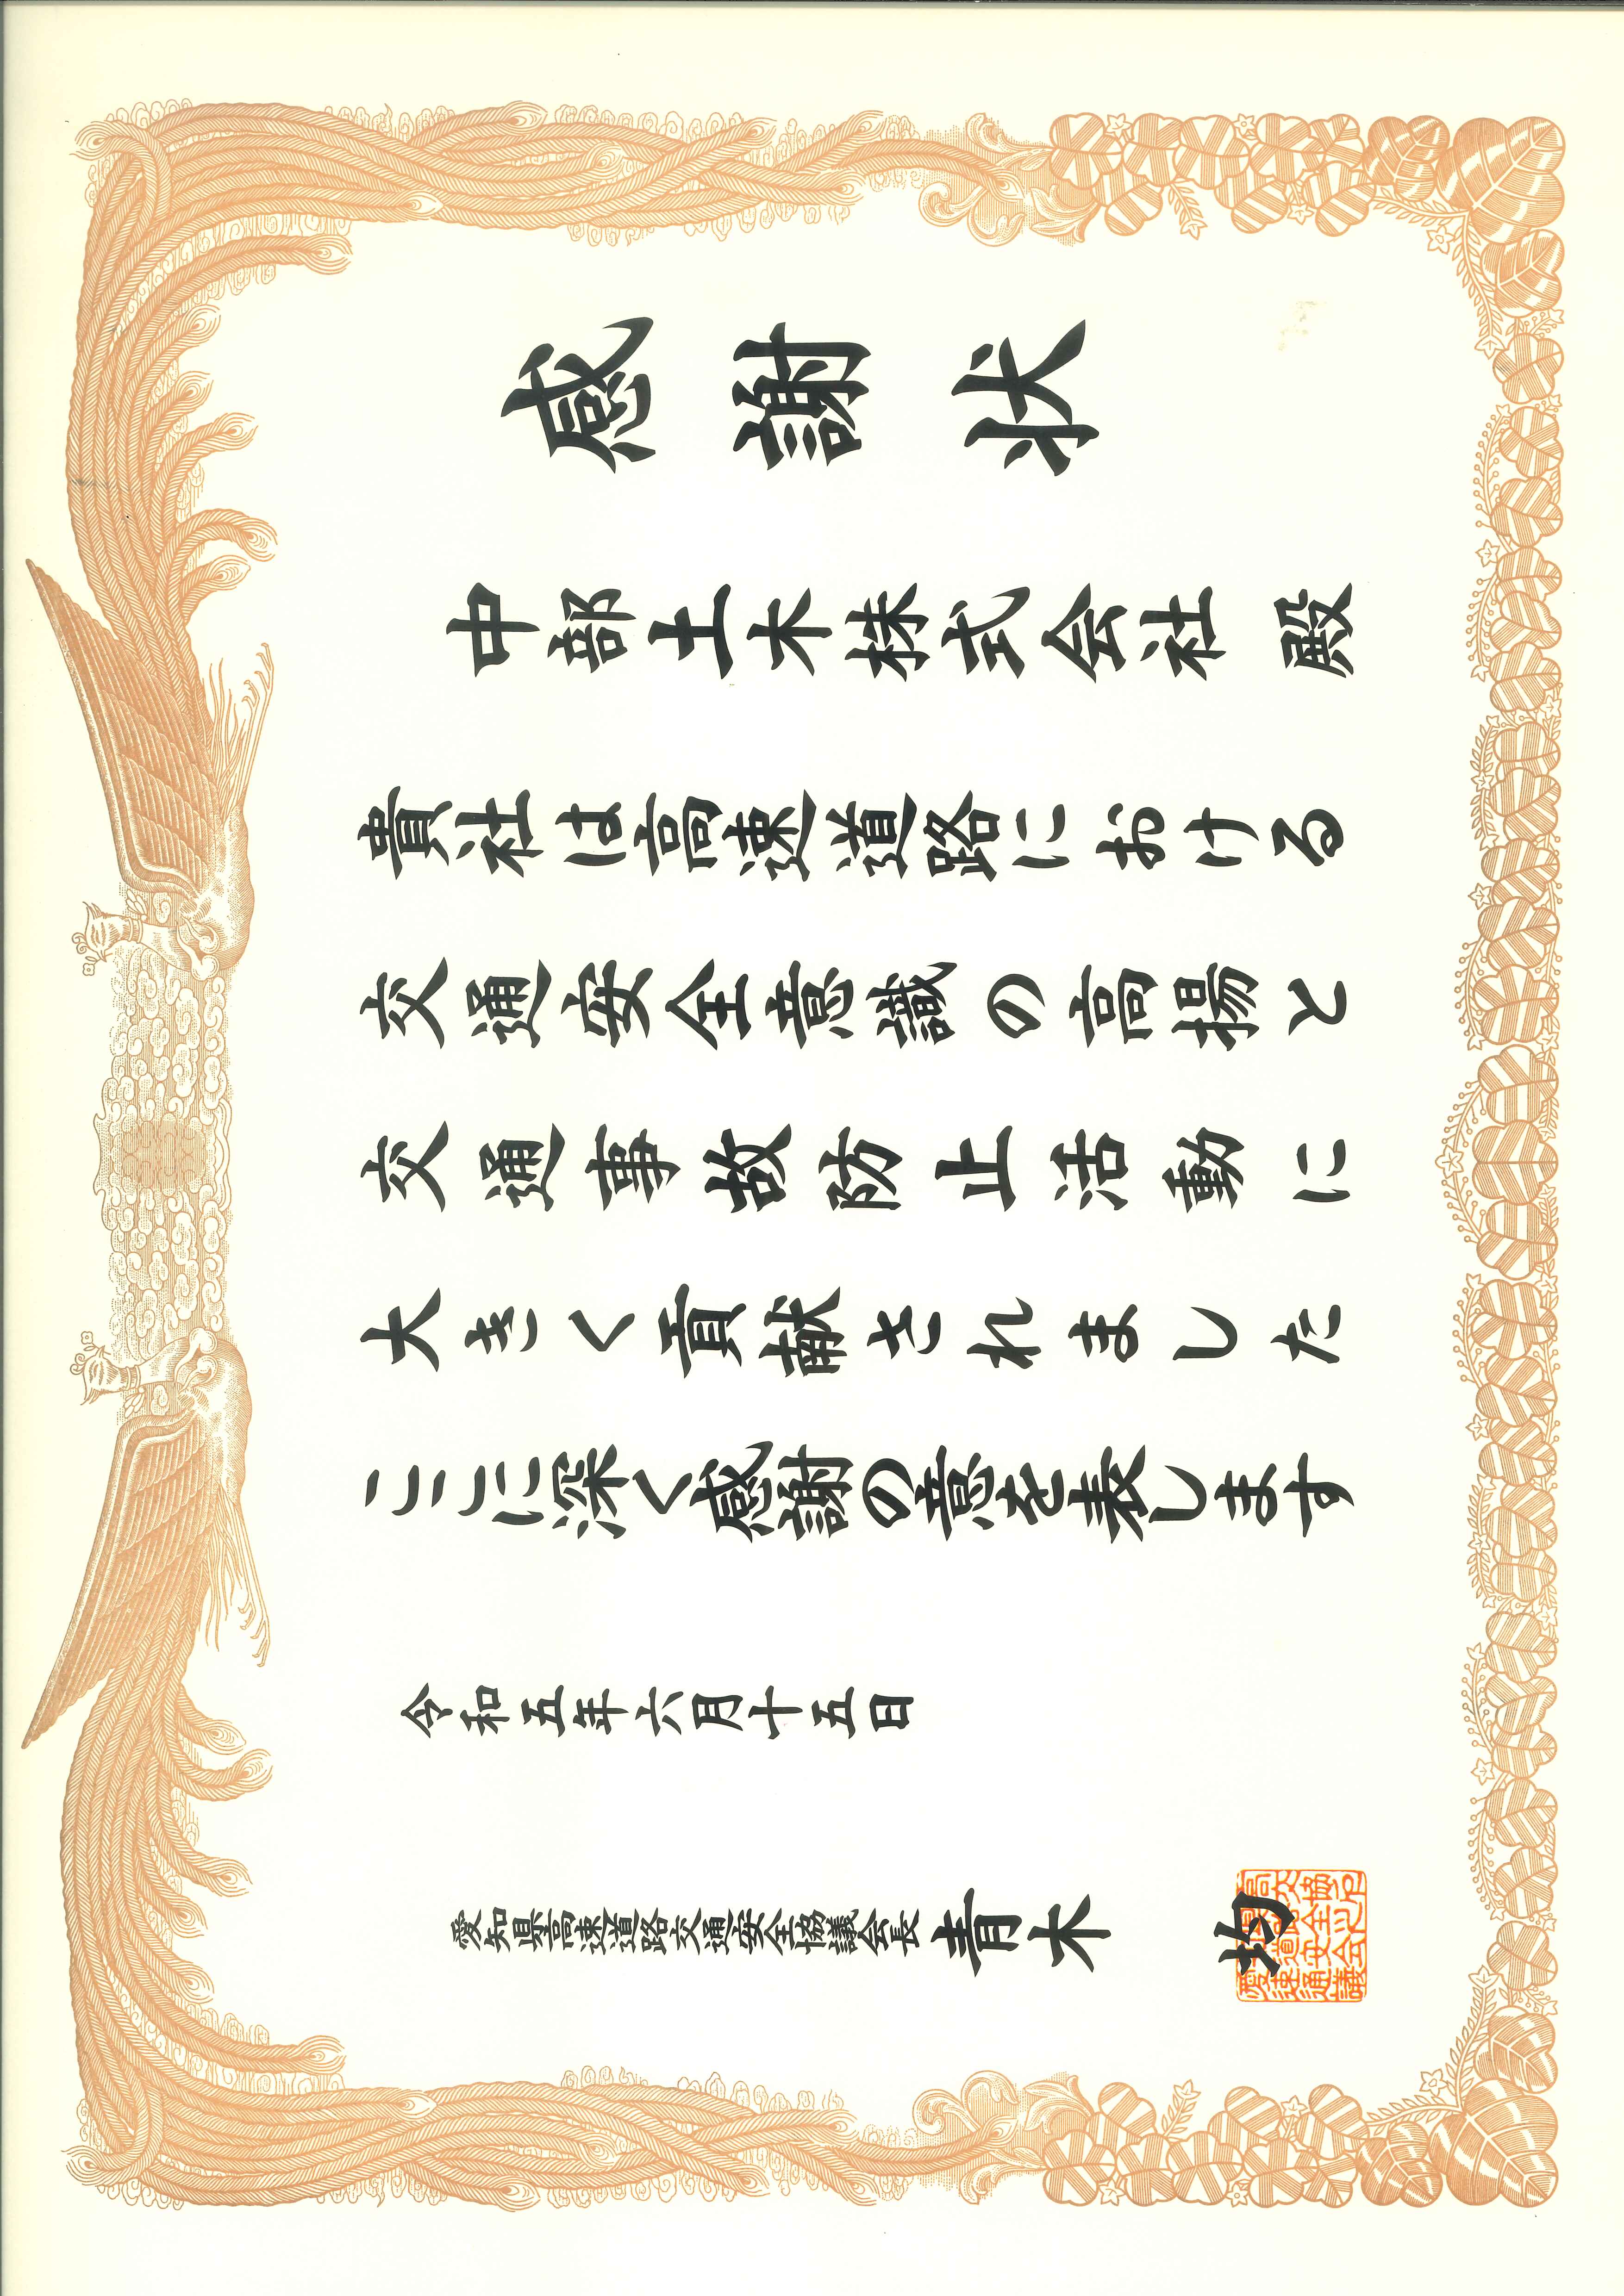 感謝状
中部土木株式会社 殿
貴社は高速道路における
交通安全意識の高揚と
交通事故防止活動に
大きく貢献されました
ここに深く感謝の意を表します
令和五年六月十五日
愛知県高速道路交通安全協議会長 青木 均